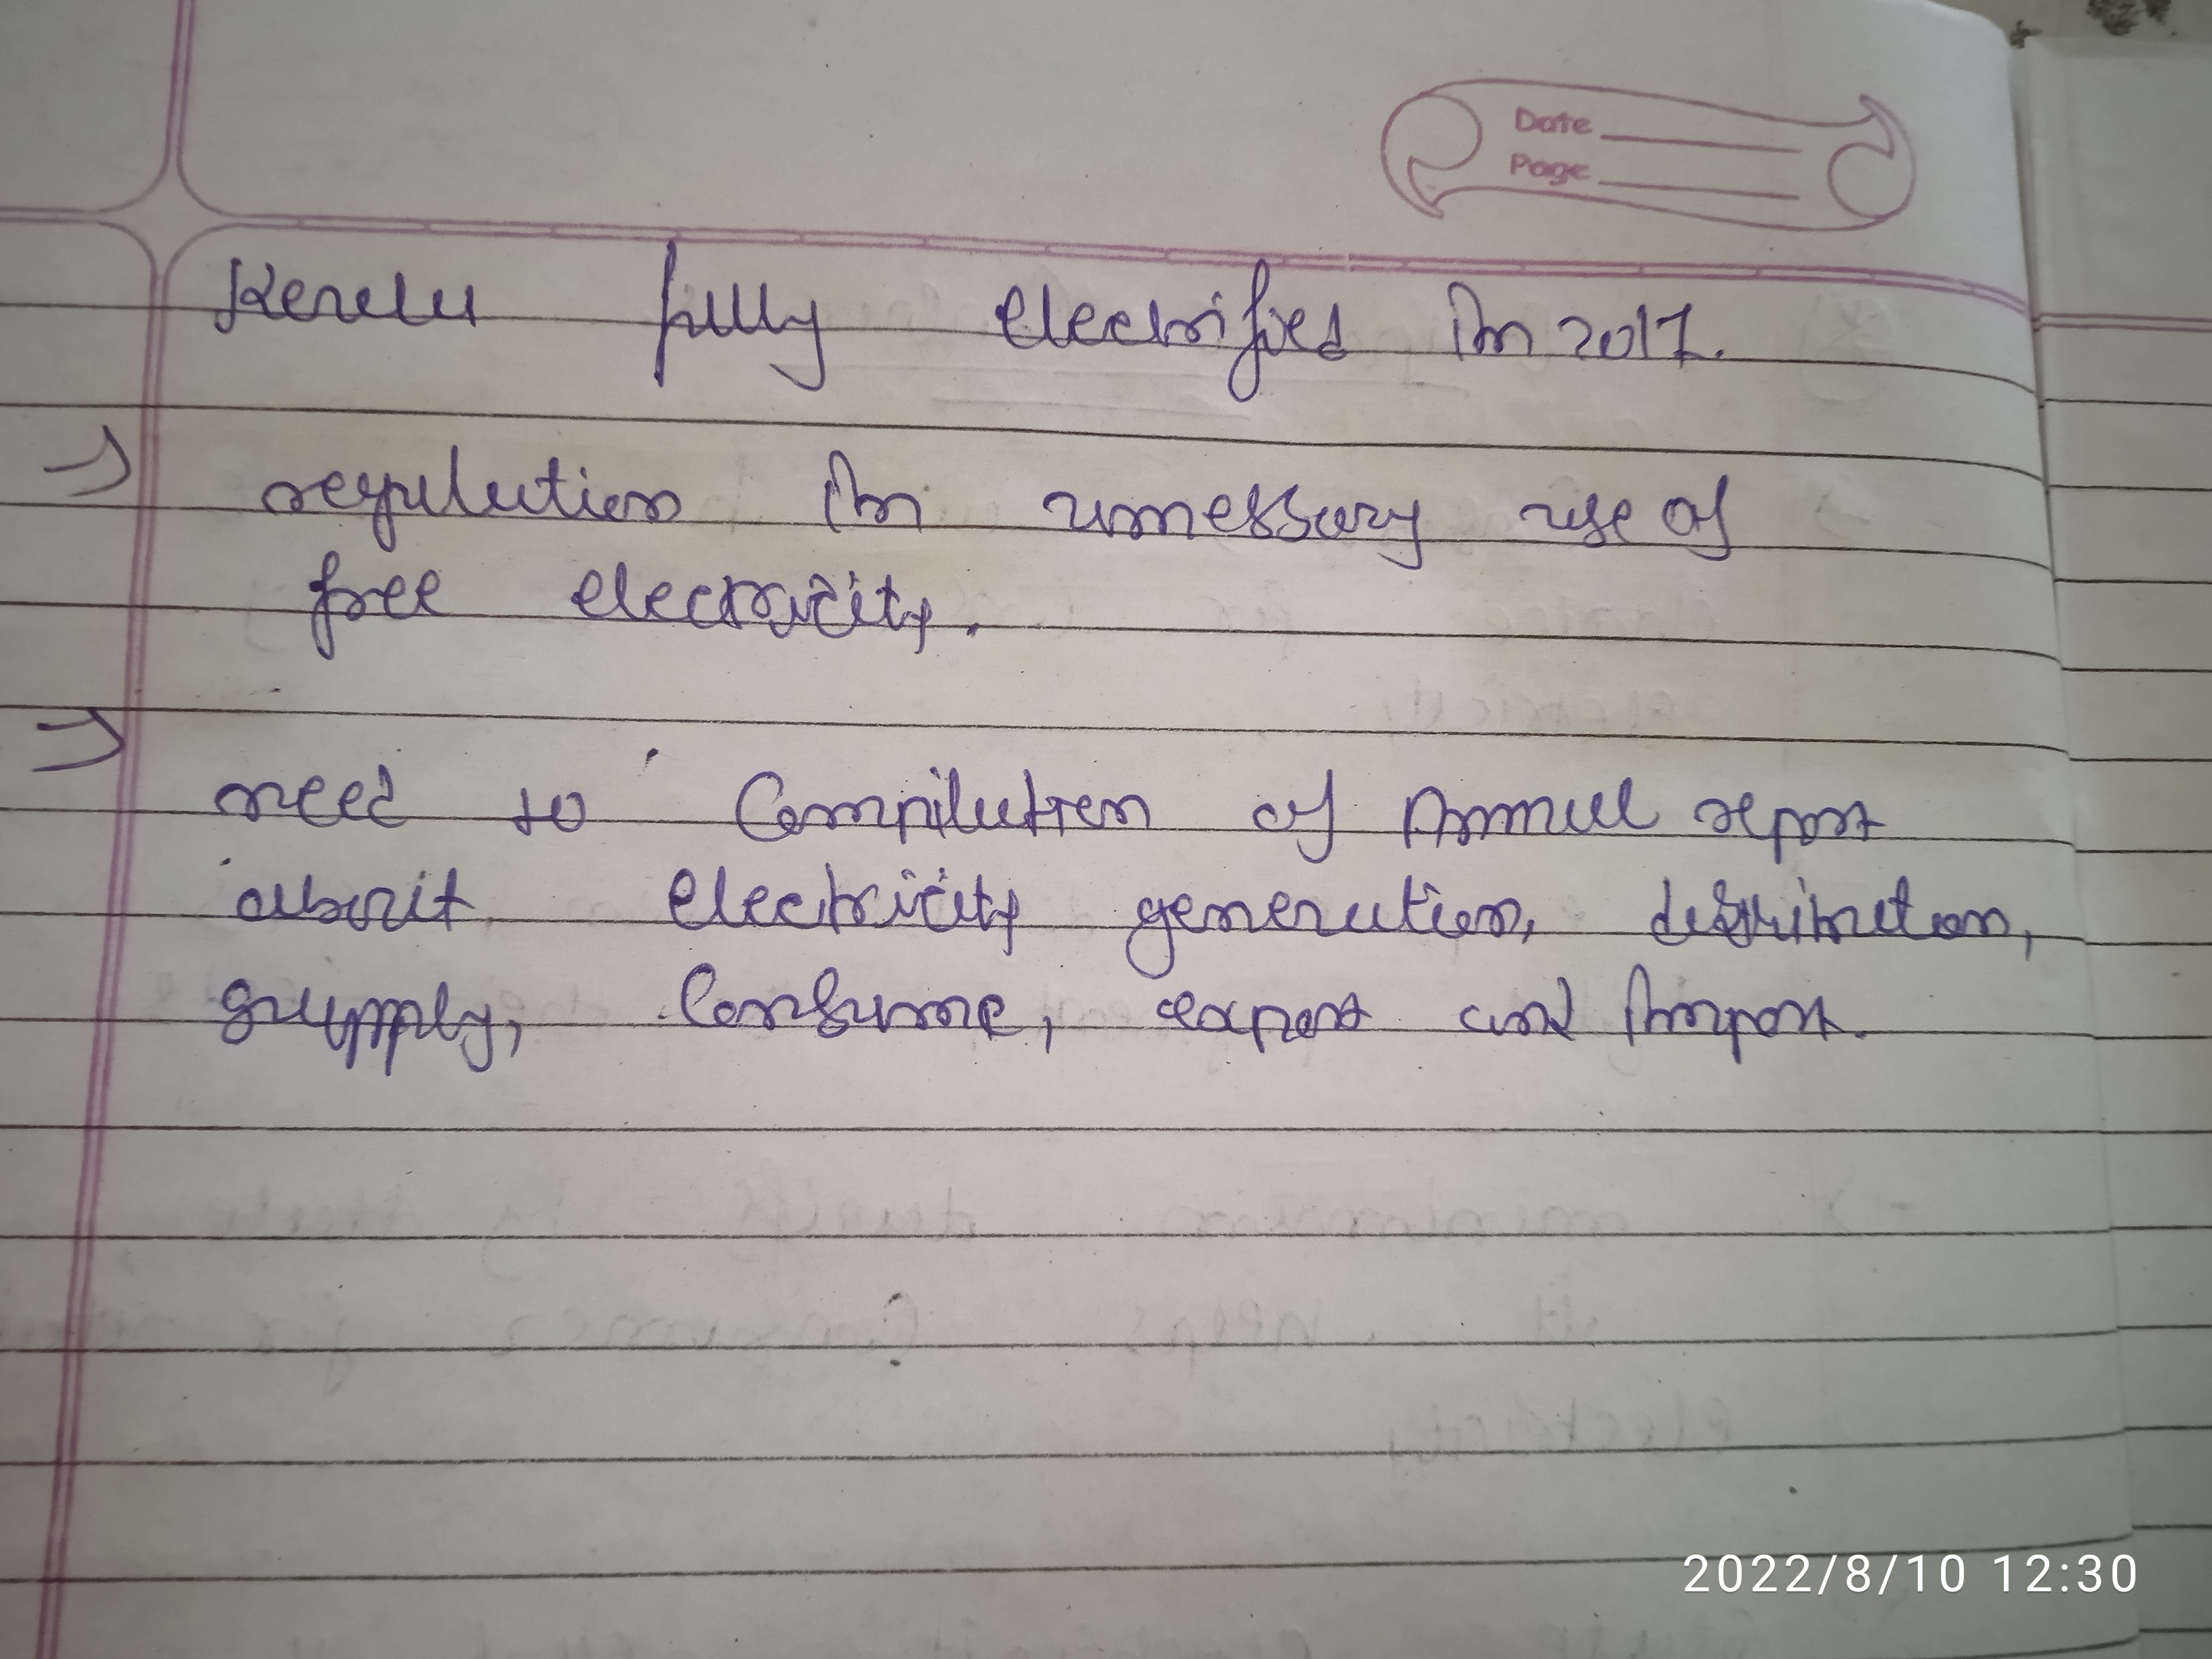 Date
Page
Kerela fully electrified in 2017.
→ regulation in unnessary use of
free electricity.
⇒ need to Compilation of Annual report
about electricity generation, distribution,
supply, Consume, export and import.
2022/8/10 12:30